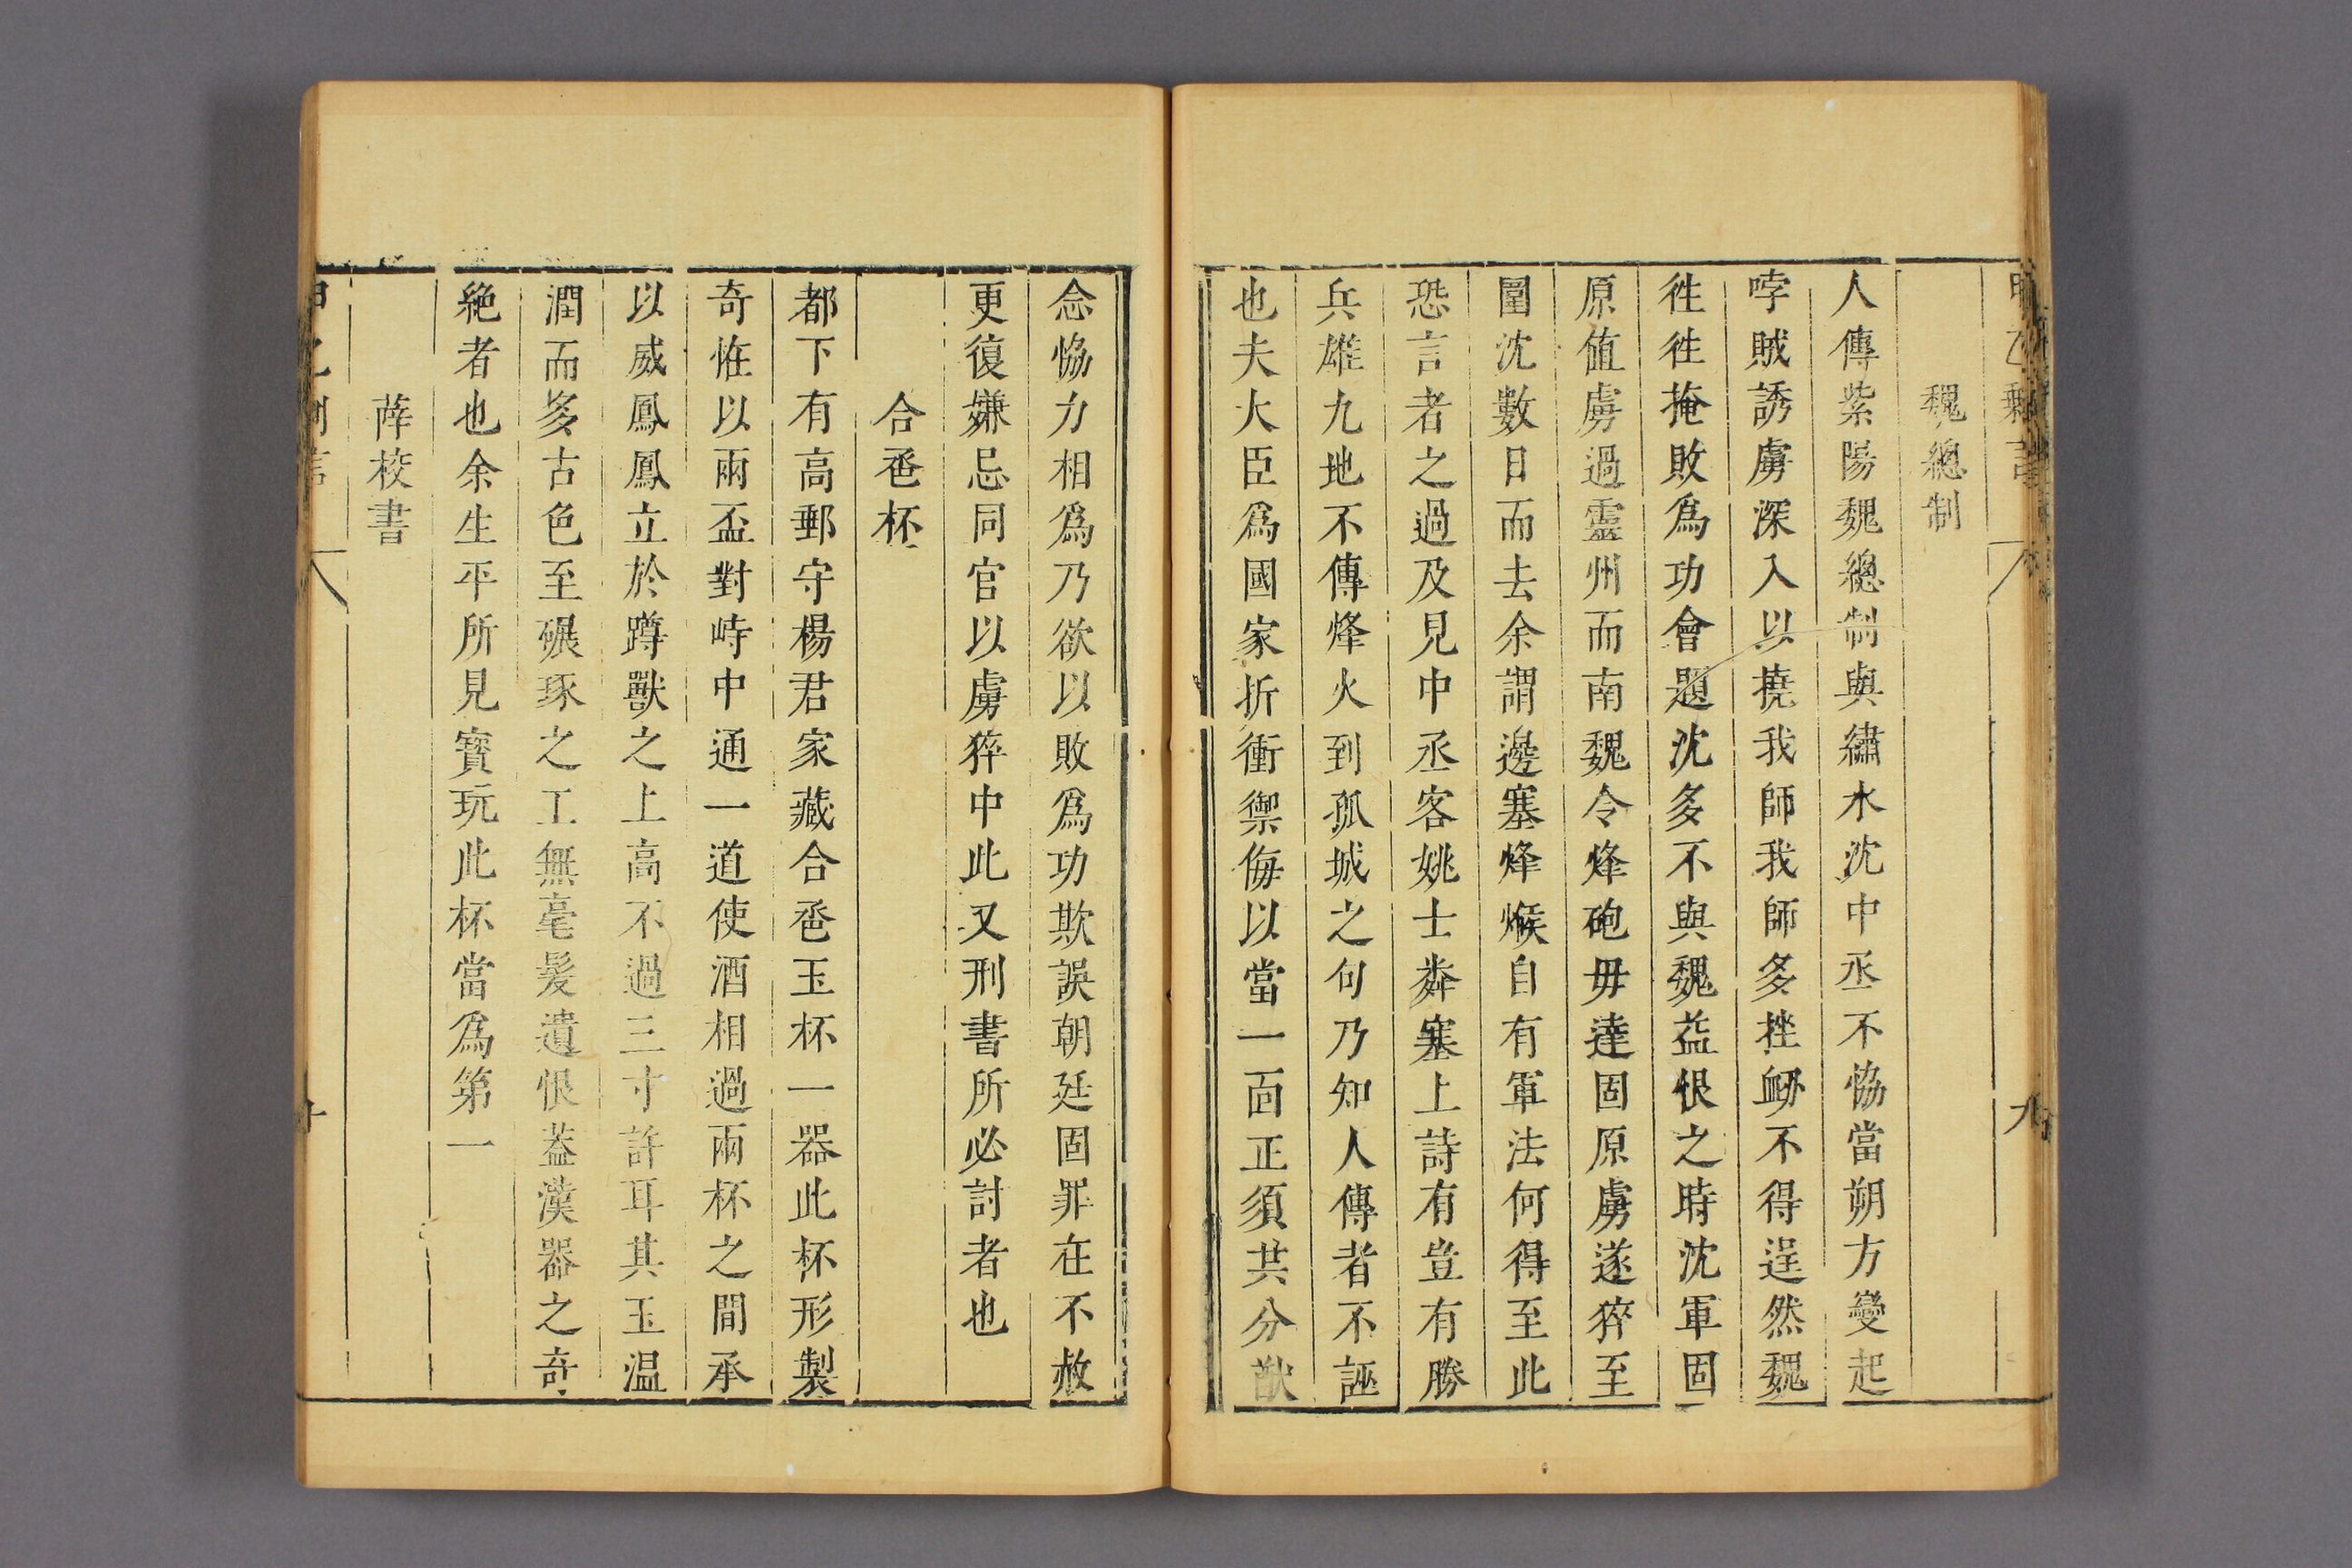 甲乙剩言
九
魏總制
人傳紫陽魏總制與繡水沈中丞不恊當朔方變起
哱賊誘虜深入以撓我師我師多挫衂不得逞然魏
徃徃掩敗爲功會題沈多不與魏益恨之時沈軍固
原値虜過靈州而南魏令烽砲毋達固原虜遂猝至
圍沈數日而去余謂邊塞烽堠自有軍法何得至此
恐言者之過及見中丞客姚士粦塞上詩有豈有勝
兵雄九地不傳烽火到孤城之句乃知人傳者不誣
也夫大臣爲國家折衝禦侮以當一面正須共分猷
念恊力相爲乃欲以敗爲功欺誤朝廷固罪在不赦
更復嫌忌同官以虜猝中此又刑書所必討者也
合卺杯
都下有高郵守楊君家藏合卺玉杯一器此杯形製
奇恠以兩盃對峙中通一道使酒相過兩杯之間承
以威鳳鳳立於蹲獸之上高不過三寸許耳其玉温
潤而多古色至碾琢之工無毫髮遺恨葢漢器之奇
絶者也余生平所見寳玩此杯當爲第一
薛校書